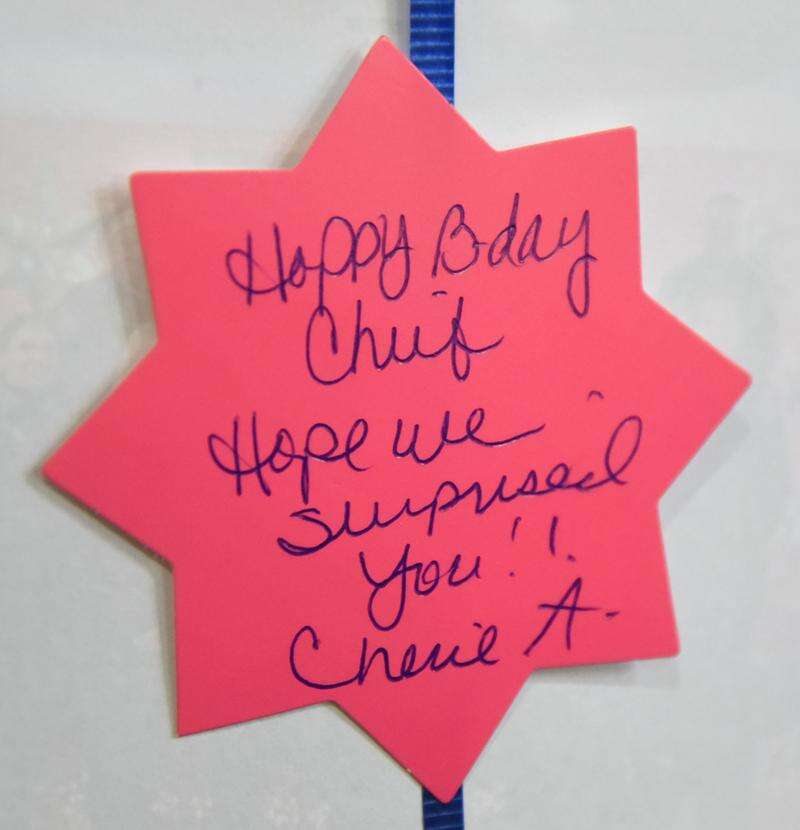 Happy B-day
Chuif
Hope we
surprised
You!!
Cherie A.